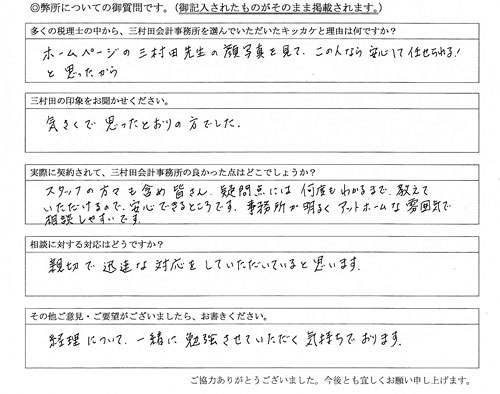 ◎弊所についての御質問です。（御記入されたものがそのまま掲載されます。）
多くの税理士の中から、三村田会計事務所を選んでいただいたキッカケと理由は何ですか?
ホームページの三村田先生の顔写真を見て、この人なら安心して任せられる!
と思ったから
三村田の印象をお聞かせください。
気さくで思ったとおりの方でした。
実際に契約されて、三村田会計事務所の良かった点はどこでしょうか?
スタッフの方々も含め皆さん、疑問点には何度もわかるまで、教えて
いただけるので、安心できるところです。事務所が明るくアットホームな雰囲気で
相談しやすいです。
相談に対する対応はどうですか?
親切で迅速な対応をしていただいていると思います。
その他ご意見・ご要望がございましたら、お書きください。
経理について、一緒に勉強させていただく気持ちでおります。
ご協力ありがとうございました。今後とも宜しくお願い申し上げます。